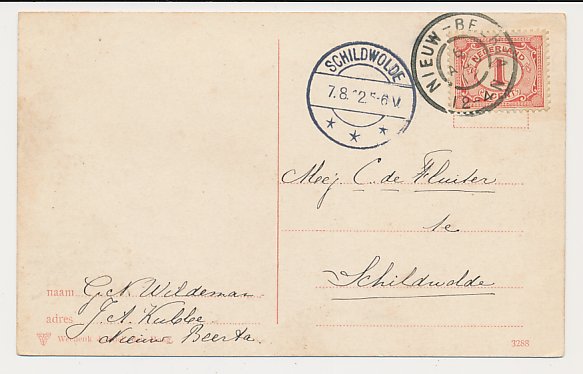 NIEUW-BEERTA
SCHILDWOLDE
7.8.12.5-6V
NEDERLAND
1
CENT
Mej C. de Fluiter
te
Schildwolde
naam G. N. Wildeman
adres J. A. Kubbe
Nieuw Beerta.
3288